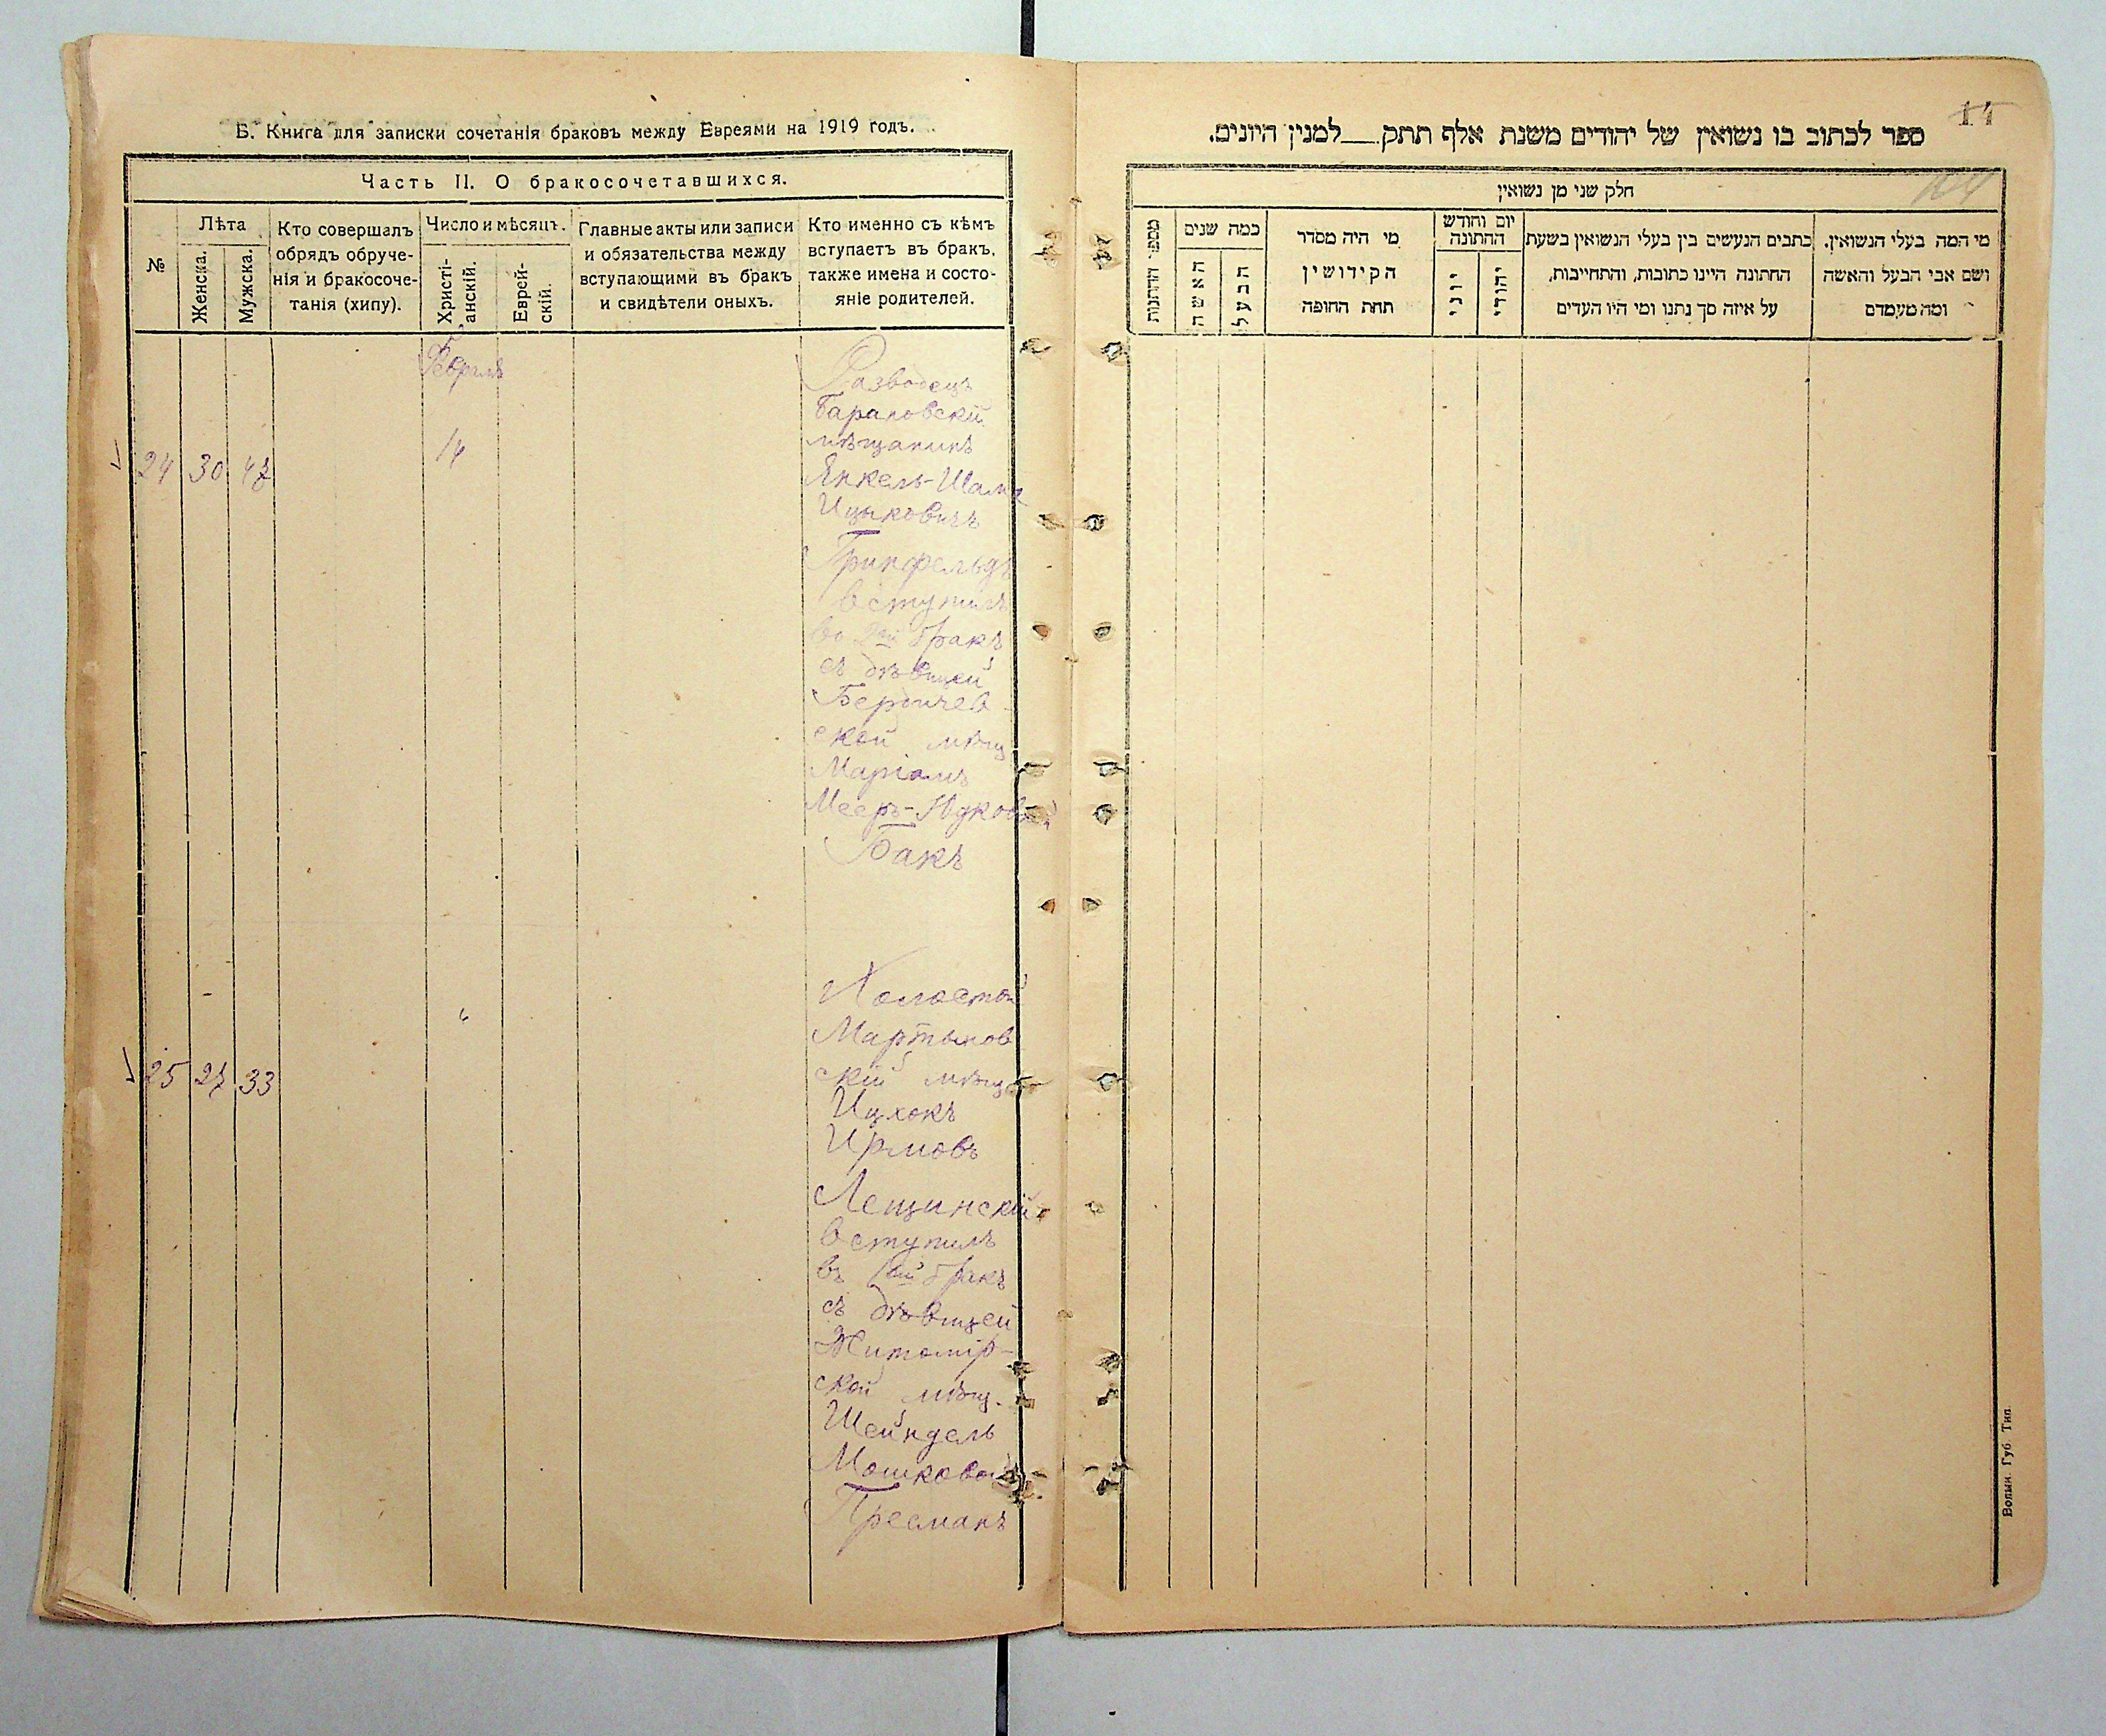 Б. Книга для записки сочетанія браковъ между Евреями на 1919 годъ.
Часть II. О бракосочетавшихся.
№
Лѣта
Женска.
Мужска.
Кто совершалъ
обрядъ обруче-
нія и бракосоче-
танія (хипу).
Число и мѣсяцъ.
Христі-
анскій.
Еврей-
скій.
Главные акты или записи
и обязательства между
вступающими въ бракъ
и свидѣтели оныхъ.
Кто именно съ кѣмъ
вступаетъ въ бракъ,
также имена и состо-
яніе родителей.
24 30 47
14
Разводецъ
Барановскій
мѣщанинъ
Янкель-Шама
Ицыковичъ
Гринфельдъ
вступилъ
во 2ой бракъ
съ дѣвицей
Бердичев-
ской мѣщ
Маріамъ
Мееръ-
Бакъ
25 27 33
"
Холостой
Мартынов
скій мѣщ
Ицхокъ
Ирмовъ
Лещинскій
вступилъ
въ 1ый бракъ
съ дѣвицей
Житомір-
ской мѣщ.
Шейндель
Мошковой
Пресманъ
14
ספר לכתוב בו נשואין של יהודים משנת אלף תתק__למנין היונים.
חלק שני מן נשואין
מספר החתונות
כמה שנים
האשה
הבעל
מי היה מסדר
הקידושין
תחת החופה
יום וחודש
החתונה
יוני
יהודי
כתבים הנעשים בין בעלי הנשואין בשעת
החתונה היינו כתובות, והתחייבות,
על איזה סך נתנו ומי היו העדים
מי המה בעלי הנשואין,
ושם אבי הבעל והאשה
ומה מעמדם
Волын. Губ. Тип.